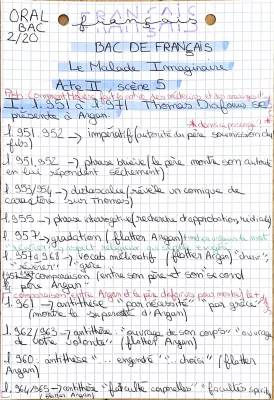 ORAL
BAC
2/20
FRANÇAIS
français
BAC DE FRANÇAIS
Le Malade Imaginaire
Acte II, scène 5
I. l. 951 à l. 971 Thomas Diafoirus se
présente à Argan.
l. 951.952 → impératif (autorité du père soumission du
fils)
l. 951.952 → phrase brève (le père montre son autorité
en lui répondant sèchement)
l. 953/954 → didascalie (révèle un comique de
caractère sur Thomas)
l. 955 → phrase interrogative (recherche d'approbation
l. 957 → gradation (flatter Argan)
l. 957 à 961 → vocab mélioratif (flatter Argan) "chérir",
"révérer"
comparaison (entre son père et son "second
père Argan"
l. 961 → antithèse "par nécessité" "par grâce"
(montre la supériorité d'Argan)
l. 962/963 → antithèse "ouvrage de son corps" "ouvrage
de votre volonté" (flatter Argan)
l. 960. antithèse "... engendré" "... choisi" (flatter
Argan)
l. 964/965 → antithèse "faculté corporelles" "facultés
(flatter Argan)